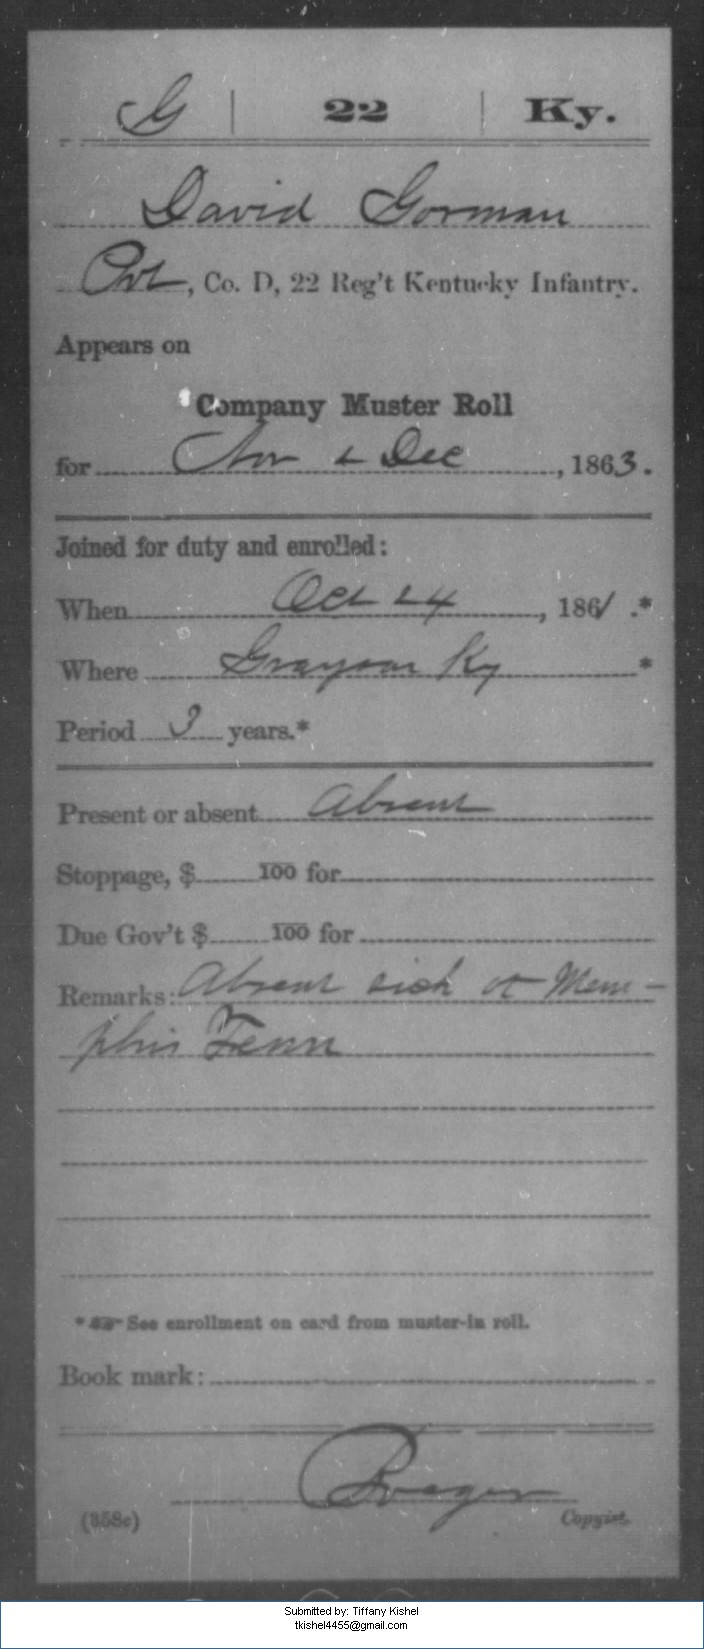 G | 22 | Ky.
David Gorman
Pvt, Co. D, 22 Reg't Kentucky Infantry.
Appears on
Company Muster Roll
for Nov & Dec, 1863.
Joined for duty and enrolled:
When Oct 24, 1861.*
Where Grayson Ky *
Period 3 years.*
Present or absent Absent
Stoppage, $ 100 for
Due Gov't $ 100 for
Remarks: Absent sick at Mem-
phis Tenn
* See enrollment on card from muster-in roll.
Book mark:
(358c) Copyist.
Submitted by: Tiffany Kishel
tkishel4455@gmail.com